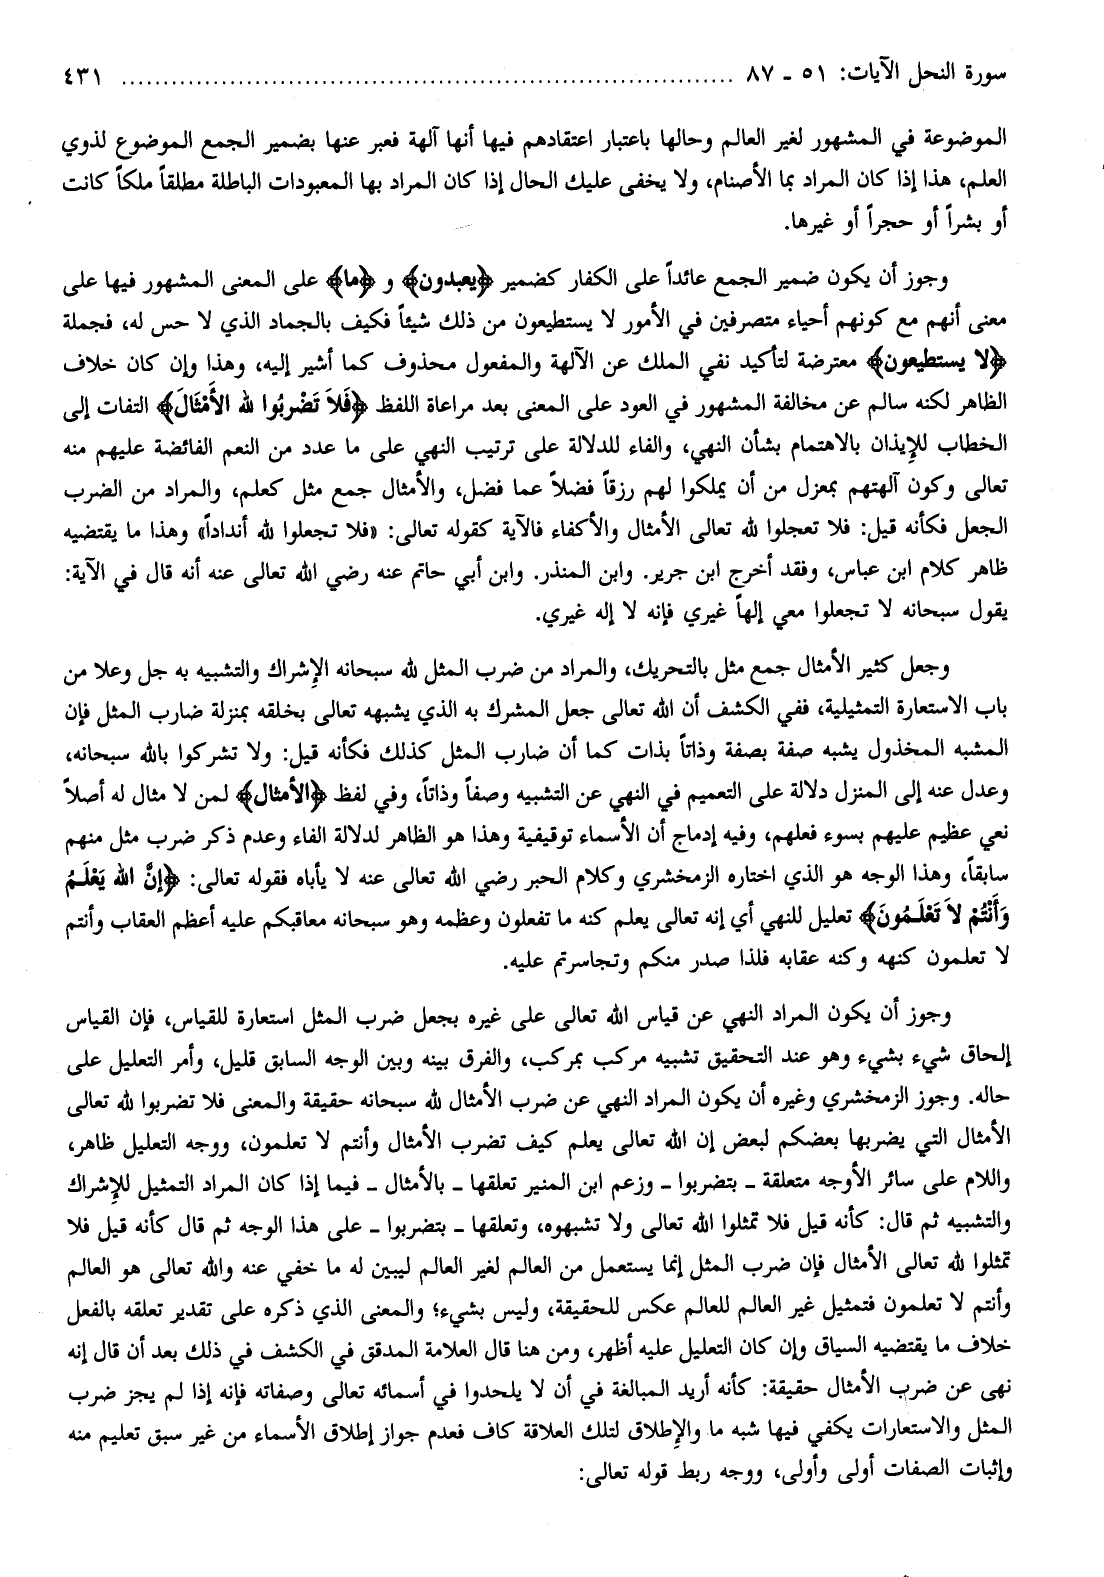 سورة النحل الآيات: ٥١ ـ ٨٧ ........................................................................... ٤٣١
الموضوعة في المشهور لغير العالم وحالها باعتبار اعتقادهم فيها أنها آلهة فعبر عنها بضمير الجمع الموضوع لذوي
العلم، هذا إذا كان المراد بما الأصنام، ولا يخفى عليك الحال إذا كان المراد بها المعبودات الباطلة مطلقاً ملكاً كانت
أو بشراً أو حجراً أو غيرها.
وجوز أن يكون ضمير الجمع عائداً على الكفار كضمير ﴿يعبدون﴾ و ﴿ما﴾ على المعنى المشهور فيها على
معنى أنهم مع كونهم أحياء متصرفين في الأمور لا يستطيعون من ذلك شيئاً فكيف بالجماد الذي لا حس له، فجملة
﴿لا يستطيعون﴾ معترضة لتأكيد نفي الملك عن الآلهة والمفعول محذوف كما أشير إليه، وهذا وإن كان خلاف
الظاهر لكنه سالم عن مخالفة المشهور في العود على المعنى بعد مراعاة اللفظ ﴿فَلاَ تَضْرِبُوا لله الأَمْثَالَ﴾ التفات إلى
الخطاب للإيذان بالاهتمام بشأن النهي، والفاء للدلالة على ترتيب النهي على ما عدد من النعم الفائضة عليهم منه
تعالى وكون آلهتهم بمعزل من أن يملكوا لهم رزقاً فضلاً عما فضل، والأمثال جمع مثل كعلم، والمراد من الضرب
الجعل فكأنه قيل: فلا تعجلوا لله تعالى الأمثال والأكفاء فالآية كقوله تعالى: «فلا تجعلوا لله أنداداً» وهذا ما يقتضيه
ظاهر كلام ابن عباس، وفقد أخرج ابن جرير. وابن المنذر. وابن أبي حاتم عنه رضي الله تعالى عنه أنه قال في الآية:
يقول سبحانه لا تجعلوا معي إلهاً غيري فإنه لا إله غيري.
وجعل كثير الأمثال جمع مثل بالتحريك، والمراد من ضرب المثل لله سبحانه الإشراك والتشبيه به جل وعلا من
باب الاستعارة التمثيلية، ففي الكشف أن الله تعالى جعل المشرك به الذي يشبهه تعالى بخلقه بمنزلة ضارب المثل فإن
المشبه المخذول يشبه صفة بصفة وذاتاً بذات كما أن ضارب المثل كذلك فكأنه قيل: ولا تشركوا بالله سبحانه،
وعدل عنه إلى المنزل دلالة على التعميم في النهي عن التشبيه وصفاً وذاتاً، وفي لفظ ﴿الأمثال﴾ لمن لا مثال له أصلاً
نعي عظيم عليهم بسوء فعلهم، وفيه إدماج أن الأسماء توقيفية وهذا هو الظاهر لدلالة الفاء وعدم ذكر ضرب مثل منهم
سابقاً، وهذا الوجه هو الذي اختاره الزمخشري وكلام الحبر رضي الله تعالى عنه لا يأباه فقوله تعالى: ﴿إنَّ الله يَعْلَمُ
وَأَنْتُمْ لاَ تَعْلَمُونَ﴾ تعليل للنهي أي إنه تعالى يعلم كنه ما تفعلون وعظمه وهو سبحانه معاقبكم عليه أعظم العقاب وأنتم
لا تعلمون كنهه وكنه عقابه فلذا صدر منكم وتجاسرتم عليه.
وجوز أن يكون المراد النهي عن قياس الله تعالى على غيره بجعل ضرب المثل استعارة للقياس، فإن القياس
إلحاق شيء بشيء وهو عند التحقيق تشبيه مركب بمركب، والفرق بينه وبين الوجه السابق قليل، وأمر التعليل على
حاله. وجوز الزمخشري وغيره أن يكون المراد النهي عن ضرب الأمثال لله سبحانه حقيقة والمعنى فلا تضربوا لله تعالى
الأمثال التي يضربها بعضكم لبعض إن الله تعالى يعلم كيف تضرب الأمثال وأنتم لا تعلمون، ووجه التعليل ظاهر،
واللام على سائر الأوجه متعلقة ـ بتضربوا ـ وزعم ابن المنير تعلقها ـ بالأمثال ـ فيما إذا كان المراد التمثيل للإشراك
والتشبيه ثم قال: كأنه قيل فلا تمثلوا الله تعالى ولا تشبهوه، وتعلقها ـ بتضربوا ـ على هذا الوجه ثم قال كأنه قيل فلا
تمثلوا لله تعالى الأمثال فإن ضرب المثل إنما يستعمل من العالم لغير العالم ليبين له ما خفي عنه والله تعالى هو العالم
وأنتم لا تعلمون فتمثيل غير العالم للعالم عكس للحقيقة، وليس بشيء؛ والمعنى الذي ذكره على تقدير تعلقه بالفعل
خلاف ما يقتضيه السياق وإن كان التعليل عليه أظهر، ومن هنا قال العلامة المدقق في الكشف في ذلك بعد أن قال إنه
نهى عن ضرب الأمثال حقيقة: كأنه أريد المبالغة في أن لا يلحدوا في أسمائه تعالى وصفاته فإنه إذا لم يجز ضرب
المثل والاستعارات يكفي فيها شبه ما والإطلاق لتلك العلاقة كاف فعدم جواز إطلاق الأسماء من غير سبق تعليم منه
وإثبات الصفات أولى وأولى، ووجه ربط قوله تعالى: